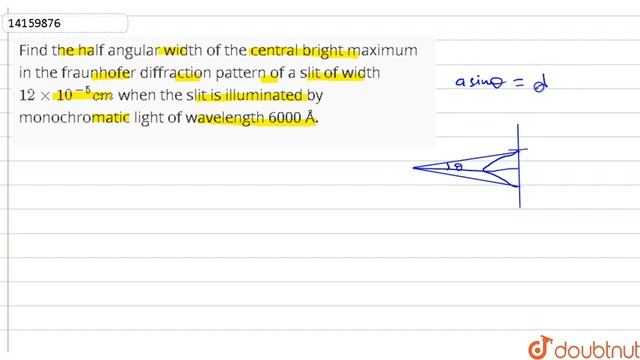 14159876
Find the half angular width of the central bright maximum
in the fraunhofer diffraction pattern of a slit of width
12 × 10⁻⁵cm when the slit is illuminated by
monochromatic light of wavelength 6000 Å.
a sinθ = d
θ
doubtnut